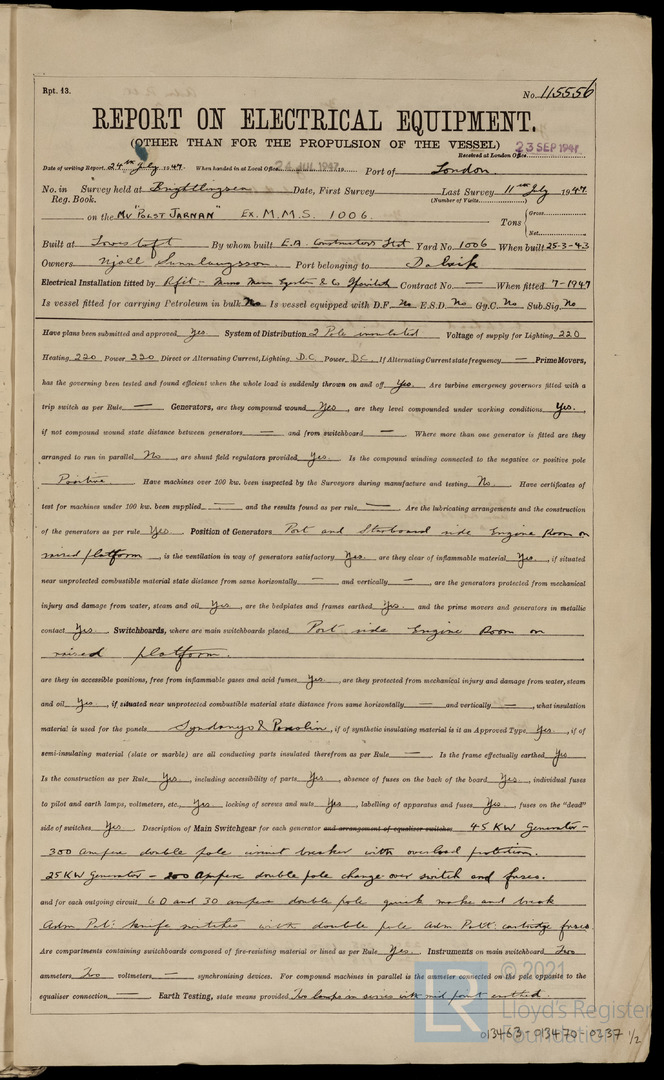 Rpt. 13.
No. 115556
REPORT ON ELECTRICAL EQUIPMENT.
(OTHER THAN FOR THE PROPULSION OF THE VESSEL) 23 SEP 1947
Received at London Office
Date of writing Report 24th July 1947. When handed in at Local Office 24 JUL 1947 19 Port of London.
No. in Survey held at Brightlingsea Date, First Survey Last Survey 11th July 1947
Reg. Book. (Number of Visits)
on the MV "POLSTJARNAN" Ex. M.M.S. 1006. Tons { Gross
Net
Built at Lowestoft By whom built E.A. Constructors Yard No. 1006 When built 25-3-43
Owners Njall Gunnlaugsson. Port belonging to Dalvik
Electrical Installation fitted by Refit - & Co Ipswich Contract No. — When fitted 7-1947
Is vessel fitted for carrying Petroleum in bulk No Is vessel equipped with D.F. No E.S.D. No Gy.C. No Sub.Sig. No
Have plans been submitted and approved Yes System of Distribution 2 Pole insulated Voltage of supply for Lighting 220
Heating 220 Power 220 Direct or Alternating Current, Lighting D.C. Power D.C. If Alternating Current state frequency — Prime Movers,
has the governing been tested and found efficient when the whole load is suddenly thrown on and off Yes. Are turbine emergency governors fitted with a
trip switch as per Rule — Generators, are they compound wound Yes, are they level compounded under working conditions Yes.
if not compound wound state distance between generators — and from switchboard — Where more than one generator is fitted are they
arranged to run in parallel No, are shunt field regulators provided Yes. Is the compound winding connected to the negative or positive pole
Positive. Have machines over 100 kw. been inspected by the Surveyors during manufacture and testing No. Have certificates of
test for machines under 100 kw. been supplied — and the results found as per rule — Are the lubricating arrangements and the construction
of the generators as per rule Yes Position of Generators Port and Starboard side Engine Room on
raised platform, is the ventilation in way of generators satisfactory Yes. are they clear of inflammable material Yes, if situated
near unprotected combustible material state distance from same horizontally — and vertically —, are the generators protected from mechanical
injury and damage from water, steam and oil Yes, are the bedplates and frames earthed Yes. and the prime movers and generators in metallic
contact Yes. Switchboards, where are main switchboards placed Port side Engine Room on
raised platform.
are they in accessible positions, free from inflammable gases and acid fumes Yes, are they protected from mechanical injury and damage from water, steam
and oil Yes, if situated near unprotected combustible material state distance from same horizontally — and vertically —, what insulation
material is used for the panels Syndanyo & Porcelin, if of synthetic insulating material is it an Approved Type Yes., if of
semi-insulating material (slate or marble) are all conducting parts insulated therefrom as per Rule — Is the frame effectually earthed Yes
Is the construction as per Rule Yes., including accessibility of parts Yes, absence of fuses on the back of the board Yes., individual fuses
to pilot and earth lamps, voltmeters, etc. Yes, locking of screws and nuts Yes, labelling of apparatus and fuses Yes, fuses on the "dead"
side of switches Yes. Description of Main Switchgear for each generator and arrangement of equaliser switches 45 KW Generator -
300 ampere double pole circuit breaker with overload protection.
25 KW Generator - 200 Ampere double pole change over switch and fuses.
and for each outgoing circuit 60 and 30 ampere double pole quick make and break
Adm Patt: knife switches with double pole Adm Patt. cartridge fuses
Are compartments containing switchboards composed of fire-resisting material or lined as per Rule Yes. Instruments on main switchboard Two
ammeters Two voltmeters — synchronising devices. For compound machines in parallel is the ammeter connected on the pole opposite to the
equaliser connection — Earth Testing, state means provided Two lamps in series with mid point earthed.
LR © 2021
Lloyd's Register
Foundation
013463-013470-0237 1/2